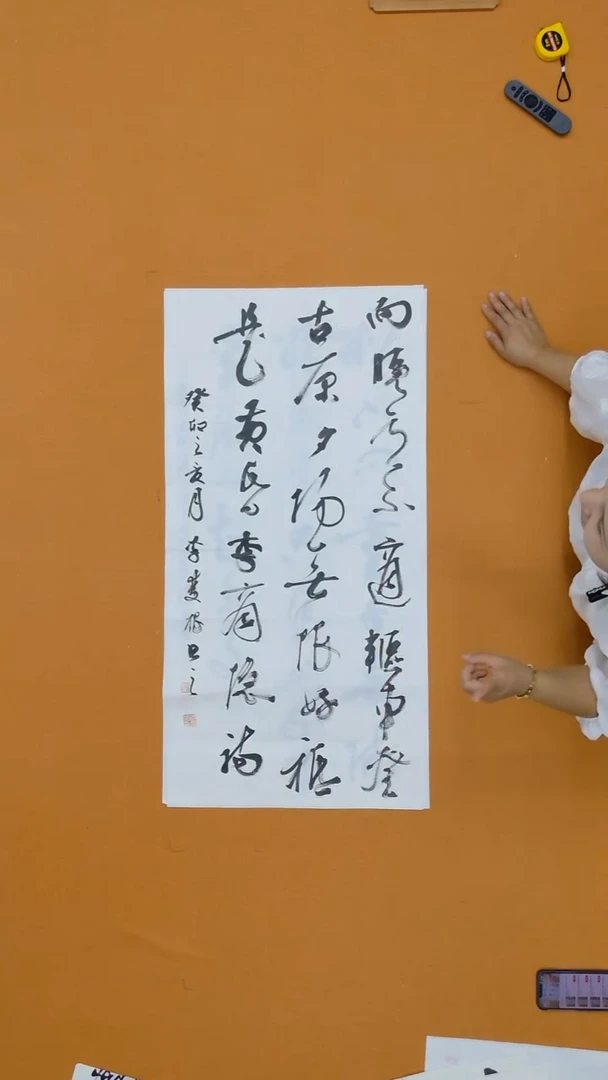 向晚意不適驅車登
古原夕陽無限好祗
是近黃昏李商隱詩
癸卯之亥月李